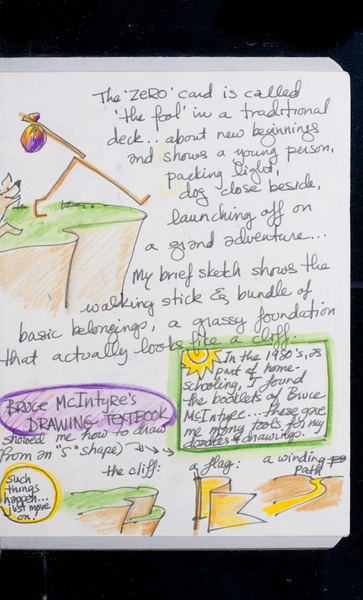 The 'ZERO' card is called
'the fool' in a traditional
deck... about new beginnings
and shows a young person,
packing light,
dog close beside,
launching off on
a grand adventure...
My brief sketh shows the
walking stick & bundle of
basic belongings, a grassy foundation
that actually looks like a cliff.
In the 1980's, as
part of home-
schooling, I found
the booklets of Bruce
McIntyre... these gave
me many tools for my
doodles & drawings.
BRUCE McINTYRE'S
DRAWING TEXTBOOK
showed me how to draw
from an "S" shape)
the cliff:
a flag:
a winding
path
such
things
happen...
just move
on.